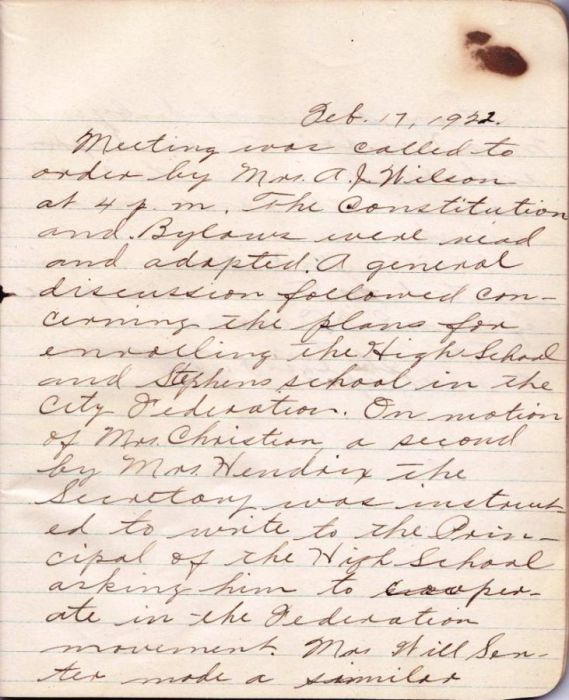 Feb. 17, 1922.
Meeting was called to
order by Mrs. A. J. Wilson
at 4 p. m. The Constitution
and Bylaws were read
and adapted. A general
discussion followed con-
cerning the plans for
enrolling the High School
and Stephens school in the
City Federation. On motion
of Mrs. Christian a second
by Mrs. Hendrix the
Secretary was instruct-
ed to write to the Prin-
cipal of the High School
asking him to cooper-
ate in the Federation
movement. Mrs Will Sen-
ter made a similar